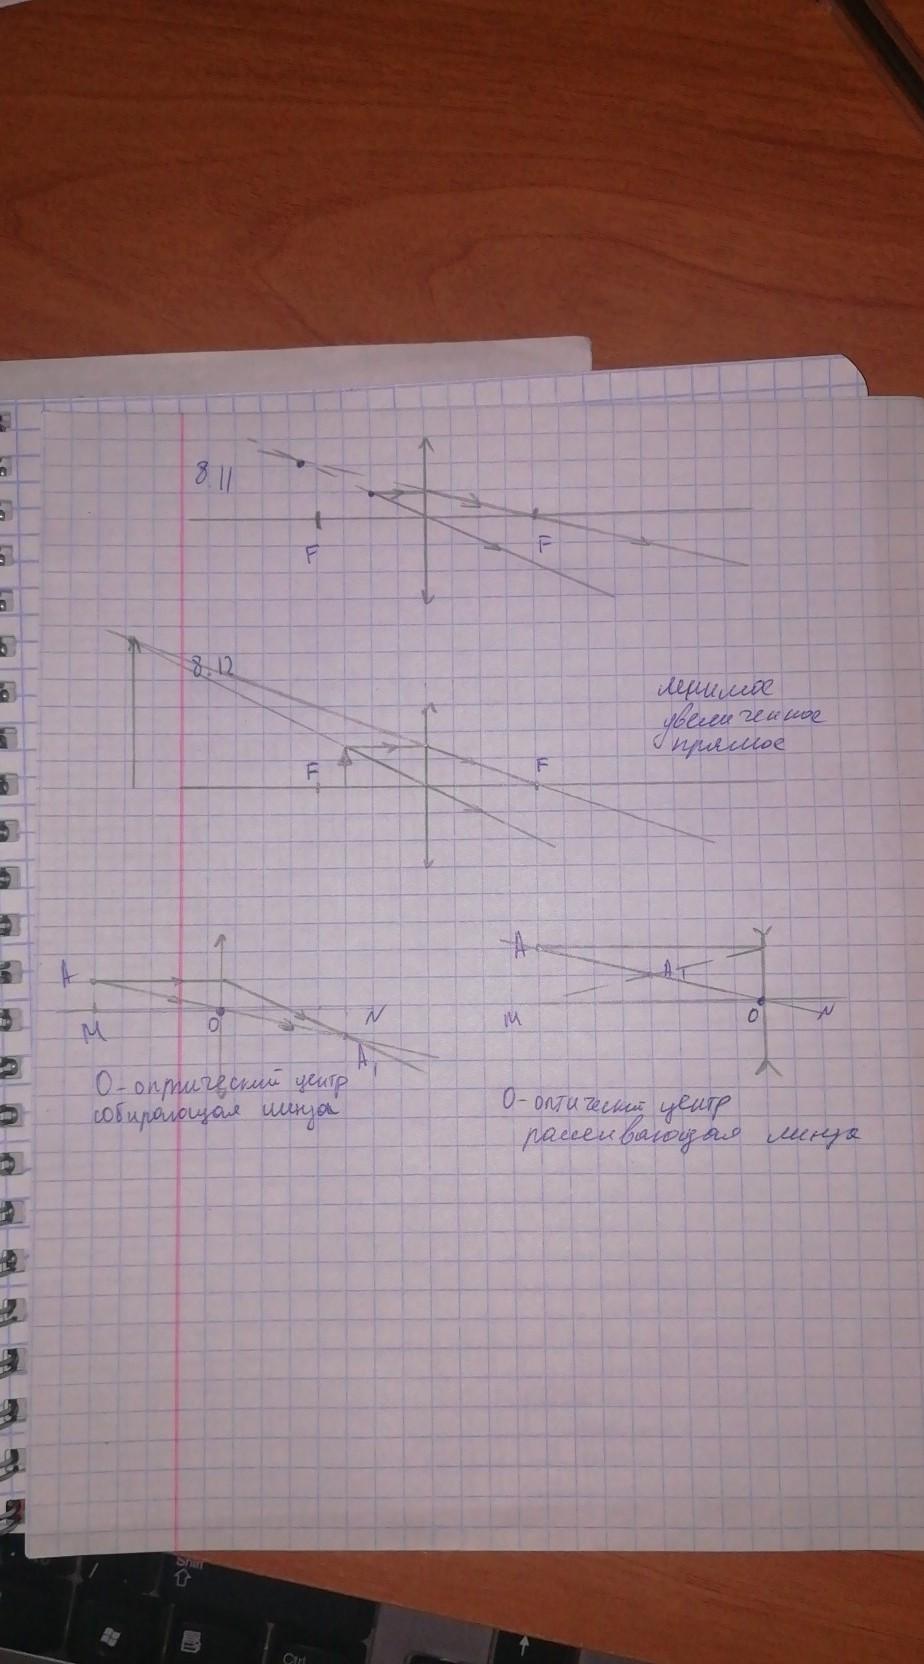 8.11
F
F
8.12
мнимое
увеличенное
прямое
F
F
A
M
O
N
A1
O - оптический центр
собирающая линза
A
A1
M
O
N
O - оптический центр
рассеивающая линза
Shift
Ctrl